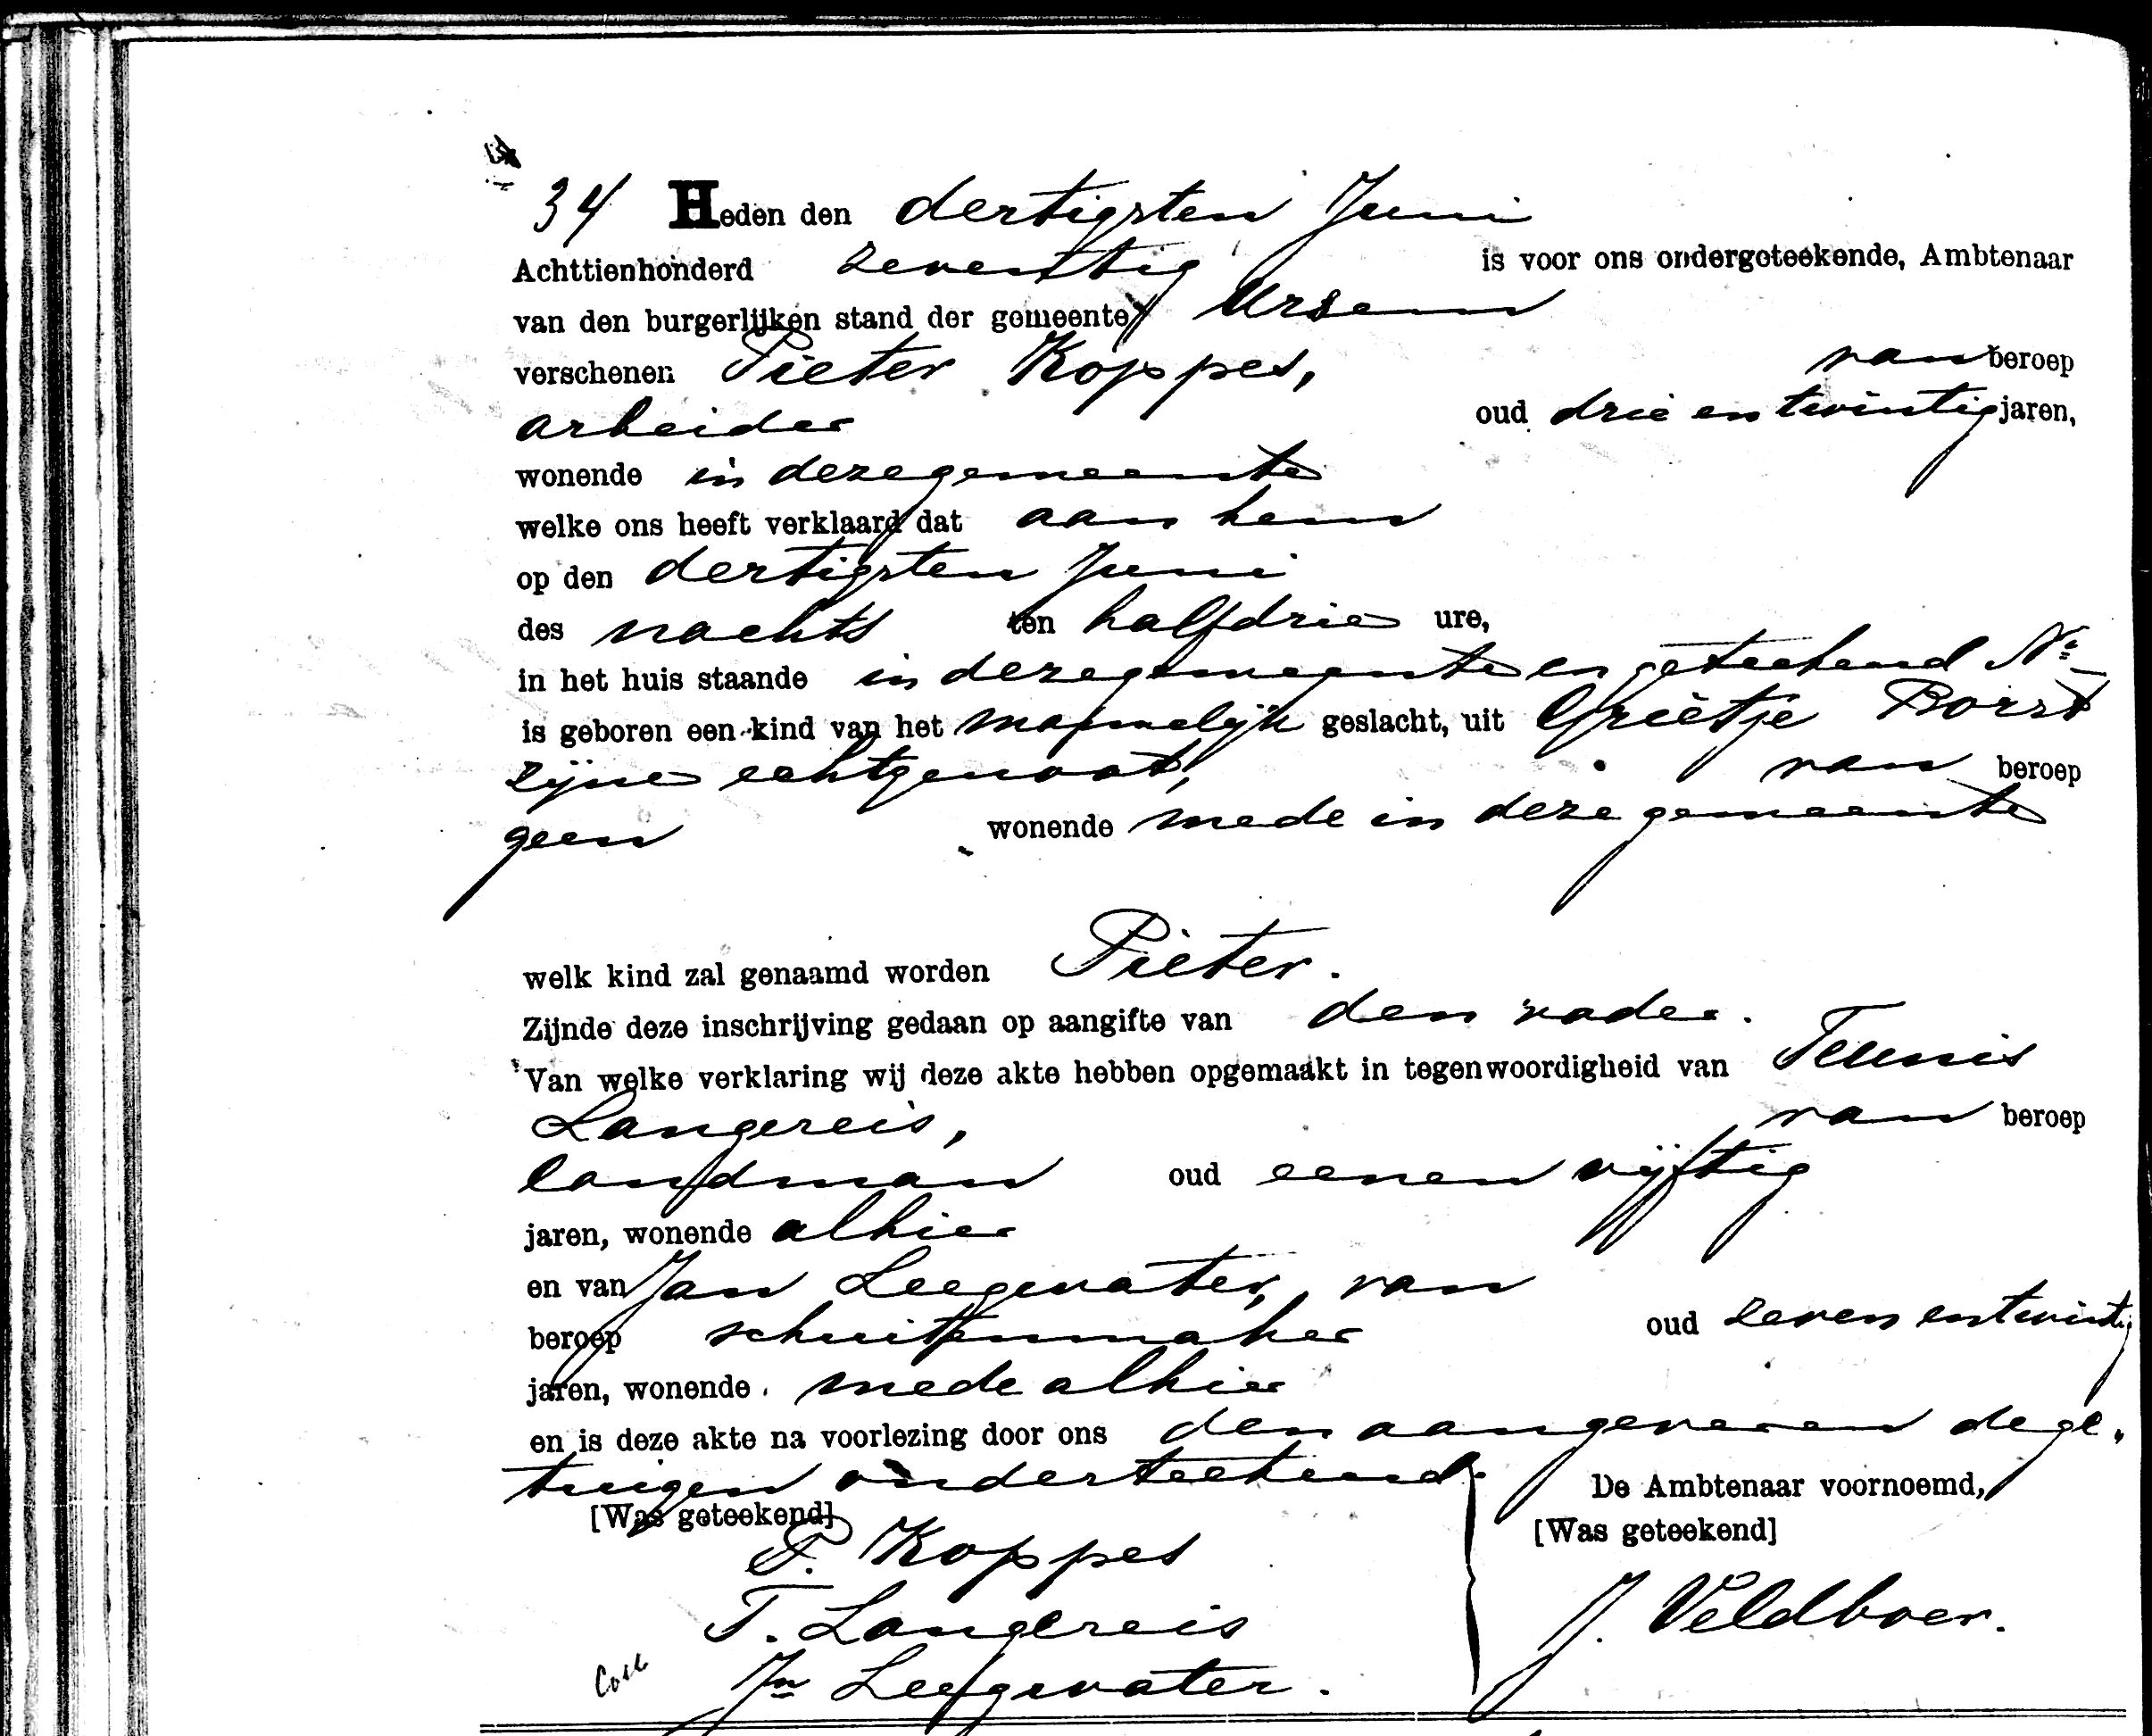 34 Heden den dertigsten Juni
Achttienhonderd zeventig is voor ons ondergeteekende, Ambtenaar
van den burgerlijken stand der gemeente Ursem
verschenen Pieter Koppes, van beroep
arbeider oud drie en twintig jaren,
wonende in deze gemeente
welke ons heeft verklaard dat aan hem
op den dertigsten Juni
des nachts ten half drie ure,
in het huis staande in deze gemeente en geteekend No
is geboren een kind van het mannelijk geslacht, uit Grietje Borst
zijne echtgenoot, van beroep
geen wonende mede in deze gemeente
welk kind zal genaamd worden Pieter.
Zijnde deze inschrijving gedaan op aangifte van den vader.
Van welke verklaring wij deze akte hebben opgemaakt in tegenwoordigheid van Teunis
Langereis, van beroep
landman oud een en vijftig
jaren, wonende alhier
en van Jan Leegwater, van
beroep schuitenmaker oud zeven en twintig
jaren, wonende mede alhier
en is deze akte na voorlezing door ons den aangever en de ge„
tuigen onderteekend.
De Ambtenaar voornoemd,
[Was geteekend] [Was geteekend]
P. Koppes
T. Langereis J. Veldboer.
Coll Jn Leegwater.